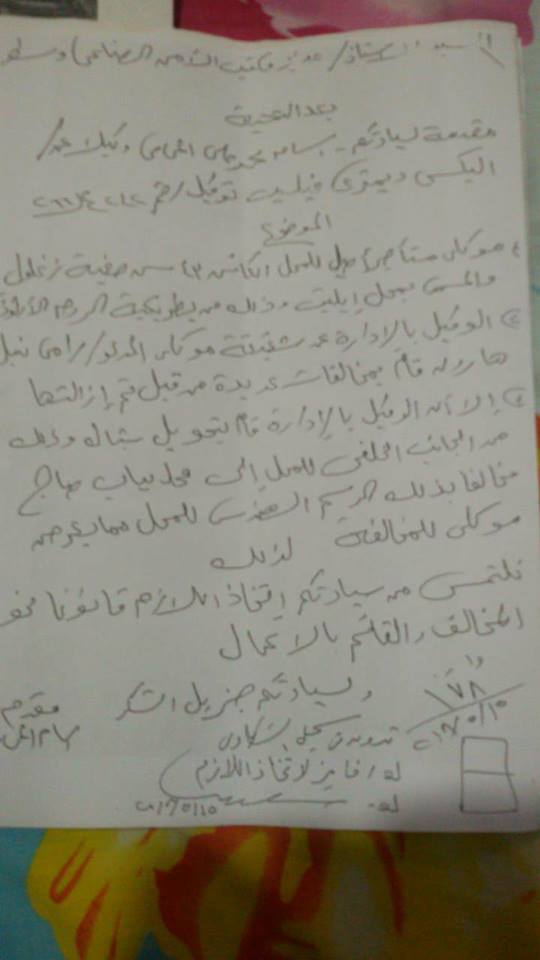 السيد الأستاذ / مدير مكتب الأمن الصناعى وسط
بعد التحية
مقدمة لسيادتكم بسام محمد المحامى وكيلا عن /
اليكسى ديمترى فيليب توكيل رقم
الموضوع
موكلى مستأجر أصيل للمحل الكائن ٤٣ ش صفية زغلول
والمسمى بمحل إيليت وذلك من بطريركية الروم الأرثوذكس
الوكيل بالإدارة عن شقيقة موكلى المدعو / رامى نبيل
هارون قام بمخالفات عديدة من قبل تم إزالتها
إلا أن الوكيل بالإدارة قام بتحويل شباك وذلك
من الجانب الخلفى للمحل إلى محل بباب صاج
مخالفا بذلك الرسم الهندسى للمحل مما يعرض
موكلى للمخالفة لذلك
نلتمس من سيادتكم اتخاذ اللازم قانونا نحو
المخالف والقائم بالاعمال
ولسيادتكم جزيل الشكر
مقدمه
بسام المحامى
١٧٨
الشكاوى
له / فايز لاتخاذ اللازم